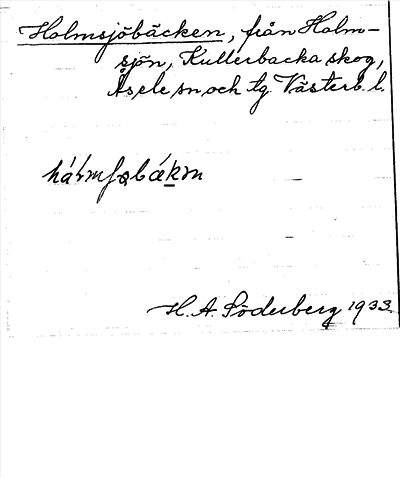 Holmsjöbäcken, från Holm-
sjön, Kullerbacka skog,
Åsele sn och tg Västerb. l.
H. A. Söderberg 1933